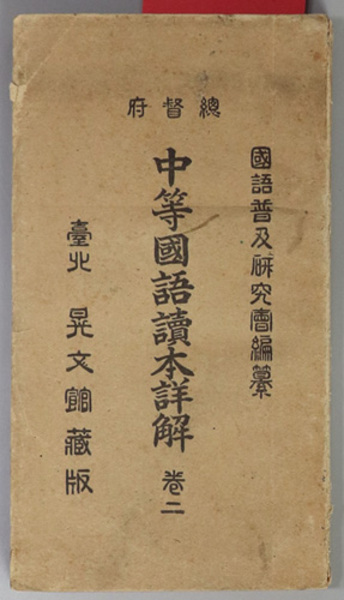 總督府
國語普及研究會編纂
中等國語讀本詳解 卷二
臺北 晃文館藏版